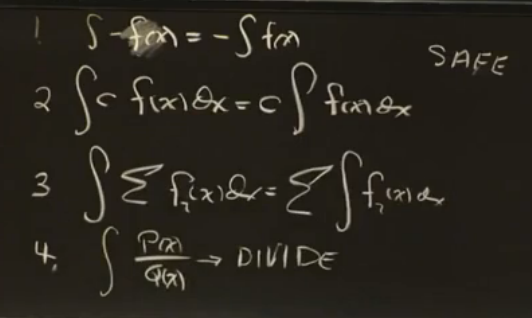 1 ∫ -f(x) = -∫ f(x)
SAFE
2 ∫ c f(x) dx = c ∫ f(x) dx
3 ∫ Σ f₂(x) dx = Σ ∫ f₂(x) dx
4. ∫ P(x)/Q(x) → DIVIDE